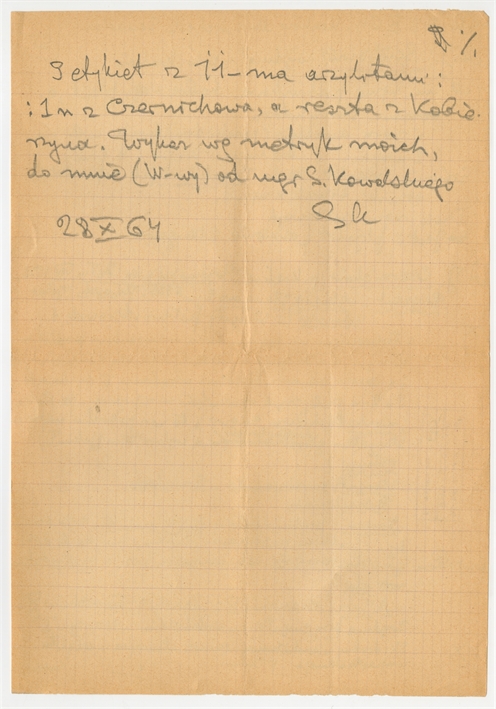 %
z 11-ma arzylotami:
: 1 n z Czernichowa, a reszta z Kobie-
rzyna. Wykaz wg metryk moich,
do mnie (W-wy) od mgr S. Kowalskiego
28 X 64